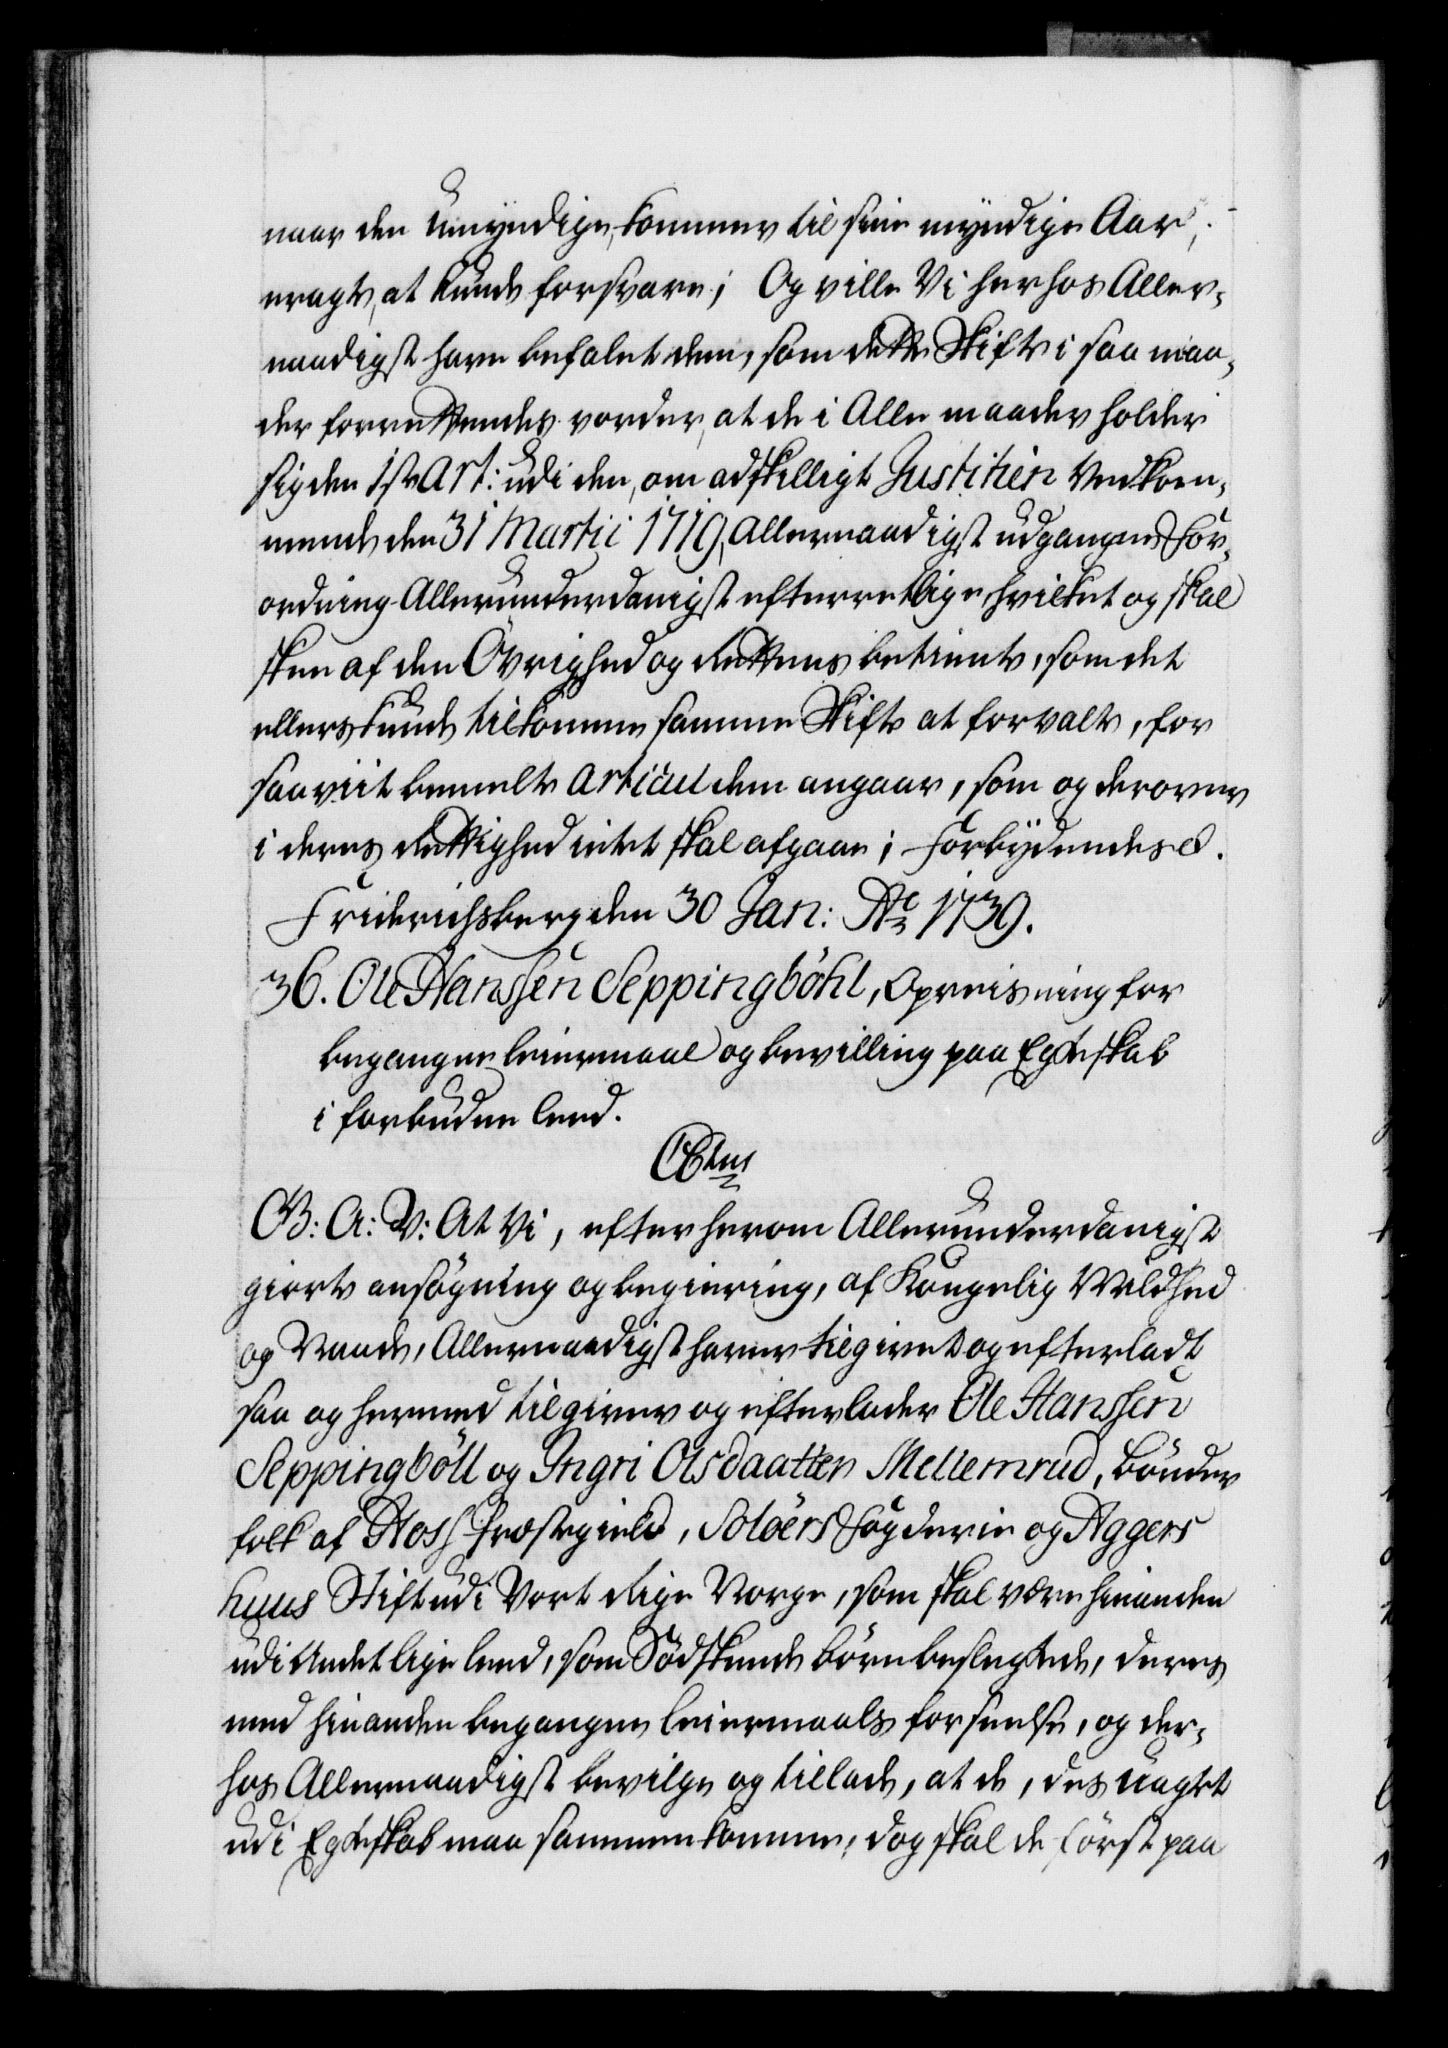 naar den Umyndige, kommer til sine myndige Aar,
eragte, at kunde forsvare; Og ville Vi herhos Aller-
naadigst have befalet dem, som dette Skifte i saa maa-
der forrettendes vorder, at de i Alle maader holder
sig den 1ste Art: udi den, om adskilligt Justitien Vedkom-
mende den 31 Martii 1719, Allernaadigst udgangne For-
ordning Allerunderdanigst efterrettlige, hvilket og skal
skee af den Övrighed og Rettens betiente, som det
ellers kunde tilkomme samme Skifte at forvalte, for
saaviit bemelte Articul dem angaar, som og derover
i deres Rettighed intet skal afgaae; Forbydendes &.
Friderichsberg den 30 Jan: Ao 1739.
36. Ole Hanssen Seppingböhl, Opreisning for
begangne leiermaal og bevilling paa Egteskab
i forbudne leed.
C6tus
G: A: V: At Vi, efter herom Allerunderdanigst
giorte ansögning og begiering, af Kongelig Mildhed
og Naade, Allernaadigst haver tilgivet og efterladt
saa og hermed tilgiver og efterlader Ole Hanssen
Seppingböll og Ingri Olsdaatter Mellemrud, bönder
folk af Hoff Præstegield, Solöers Fogderie og Aggers
huus Stift udi Vort Rige Norge, som skal være hinanden
udi Andet lige leed, som Södskende börn beslegtede, deres
med hinanden begangne leiermaals forseelse, og der-
hos Allernaadigst bevilge og tillade, at de, des uagtet
udi Egteskab maa sammenkomme, dog skal de först paa